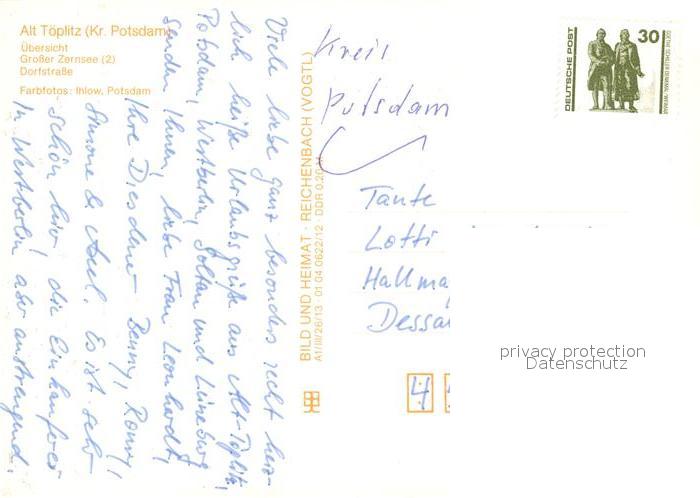 Alt Töplitz (Kr. Potsdam)
Übersicht
Großer Zernsee (2)
Dorfstraße
Farbfotos: Ihlow, Potsdam
Viele liebe ganz besonders recht herz-
lich heiße Urlaubsgrüße aus Alt-Töplitz,
Potsdam, Westberlin, Soltau und Lüneburg
senden Ihnen, liebe Frau Leonhardt,
Ihre Dresdener Benny, Ronny,
Simone & Axel. Es ist sehr
schön hier, die Einkauferei
in Westberlin aber anstrengend.
BILD UND HEIMAT · REICHENBACH (VOGTL)
A1/III/26/13 · 01 04 0622/12 · DDR 0,20
Kreis
Potsdam
DEUTSCHE POST
30
GOETHE-SCHILLER-DENKMAL · WEIMAR
Tante
Lotti
Hallma
Dessa
4
privacy protection
Datenschutz